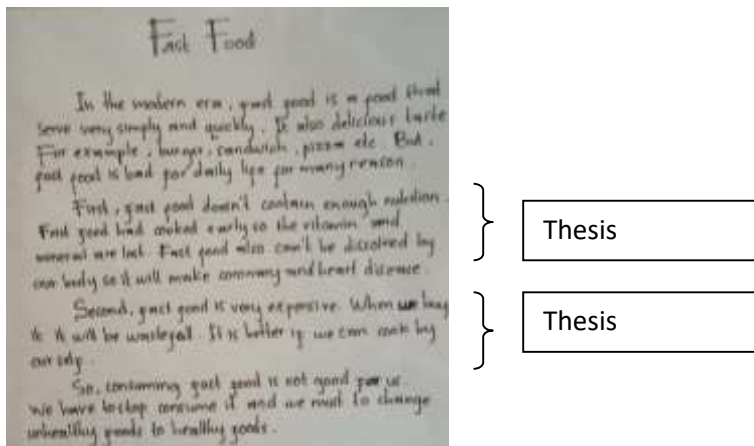 Fast Food
In the modern era, fast food is a food that
serve very simply and quickly. It also delicious taste
For example, burger, sandwich, pizza etc. But,
fast food is bad for daily life for many reason.
First, fast food doesn't contain enough nutrition.
Fast food had cooked early so the vitamin and
mineral are lost. Fast food also can't be dissolved by
our body so it will make and heart disease.
Second, fast food is very expensive. When we buy
it it will be wasteful. It is better if we can cook by
our self.
So, consuming fast food is not good for us
We have to stop consume it and we must to change
unhealthy foods to healthy foods.
Thesis
Thesis